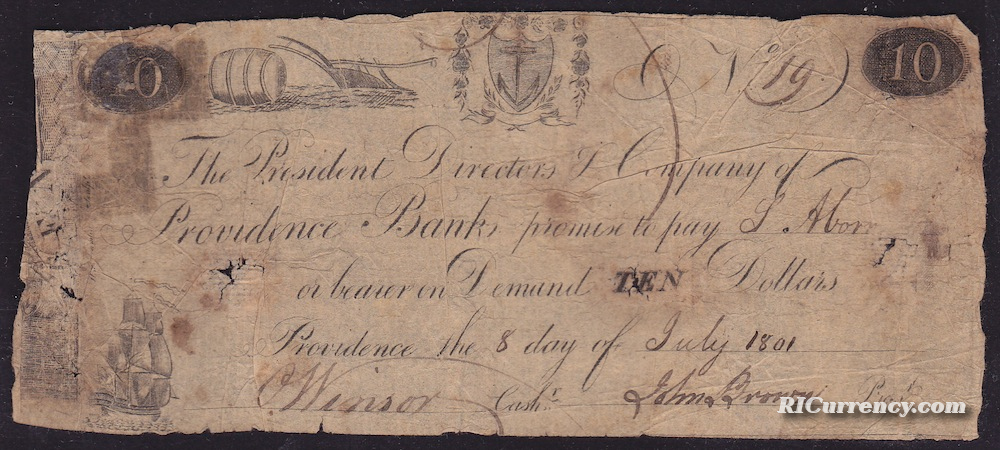 10 No. 19. 10
The President Directors & Company of
Providence Bank promise to pay S. Aborn
or bearer on Demand TEN Dollars
Providence the 8 day of July 1801
Winsor Cashr. John Brown Prest.
RICurrency.com